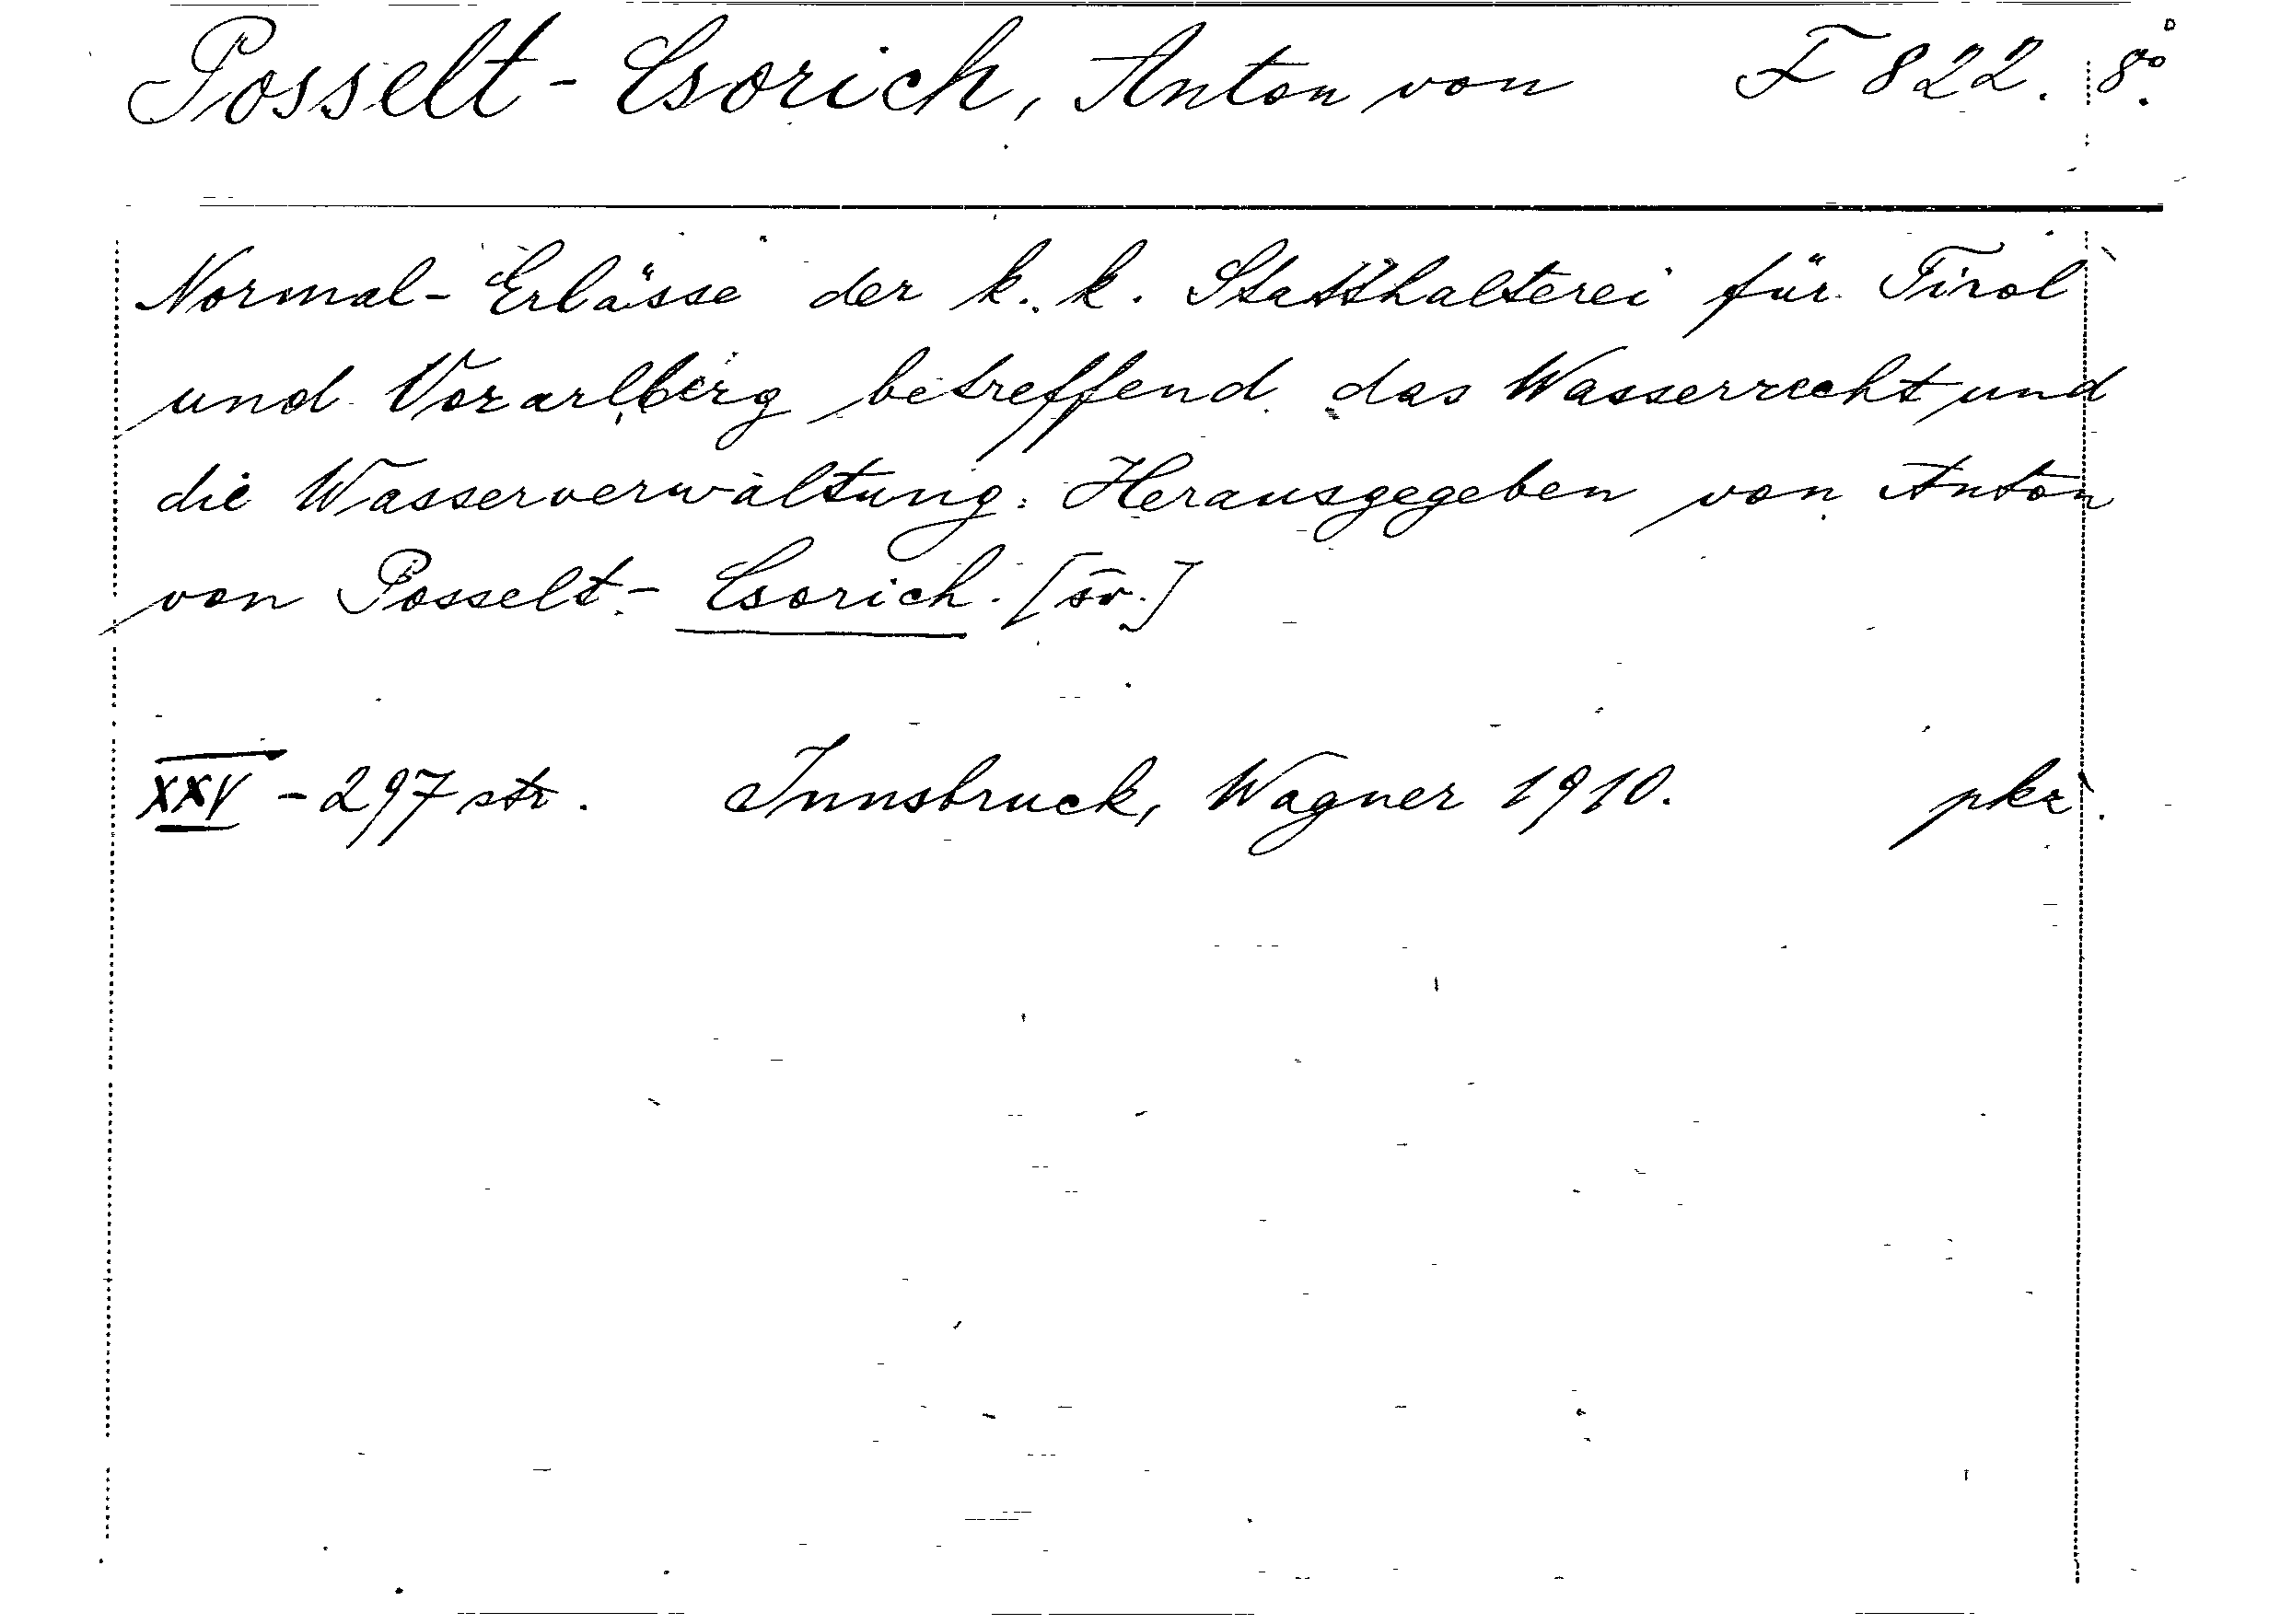 Posselt-Csorich, Anton von F 822. 8°.
Normal-Erlässe der k. k. Statthalterei für Tirol
und Vorarlberg betreffend das Wasserrecht und
die Wasserverwaltung. Herausgegeben von Anton
von Posselt-Csorich. [sv.]
XXV - 297 str. Innsbruck, Wagner 1910. pkž.